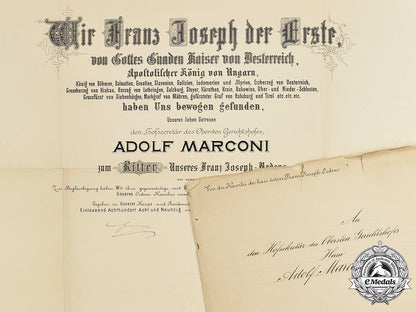 Wir Franz Joseph der Erste,
von Gottes Gnaden Kaiser von Oesterreich,
Apostolischer König von Ungarn,
König von Böhmen, Dalmatien, Croatien, Slavonien, Galizien, Lodomerien und Illyrien, Erzherzog von Oesterreich,
Grossherzog von Krakau, Herzog von Lothringen, Salzburg, Steyer, Kärnthen, Krain, Bukowina, Ober- und Nieder-Schlesien,
Grossfürst von Siebenbürgen, Markgraf von Mähren, gefürsteter Graf von Habsburg und Tirol etc. etc. etc.
haben Uns bewogen gefunden,
Unseren lieben Getreuen
den Hofsecretär des Obersten Gerichtshofes,
ADOLF MARCONI
zum Ritter Unseres Franz Joseph-Ordens
Zur Beglaubigung haben Wir
Unseres Ordens
Gegeben in Unserer Haupt- und
Eintausend Achthundert Acht und Neunzig
Von der Kanzlei des kais. österr. Franz Joseph-Ordens
An
den Hofsecretär des Obersten Gerichtshofes
Herrn
Adolf Mar
eMedals